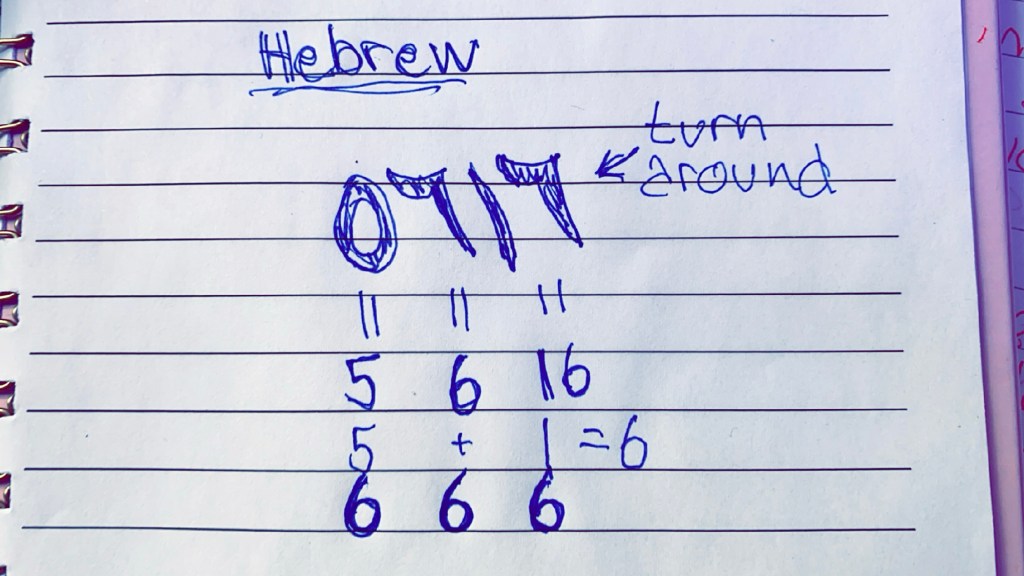 Hebrew
turn
around
0717
|| || ||
5 6 16
5 + 1 = 6
6 6 6